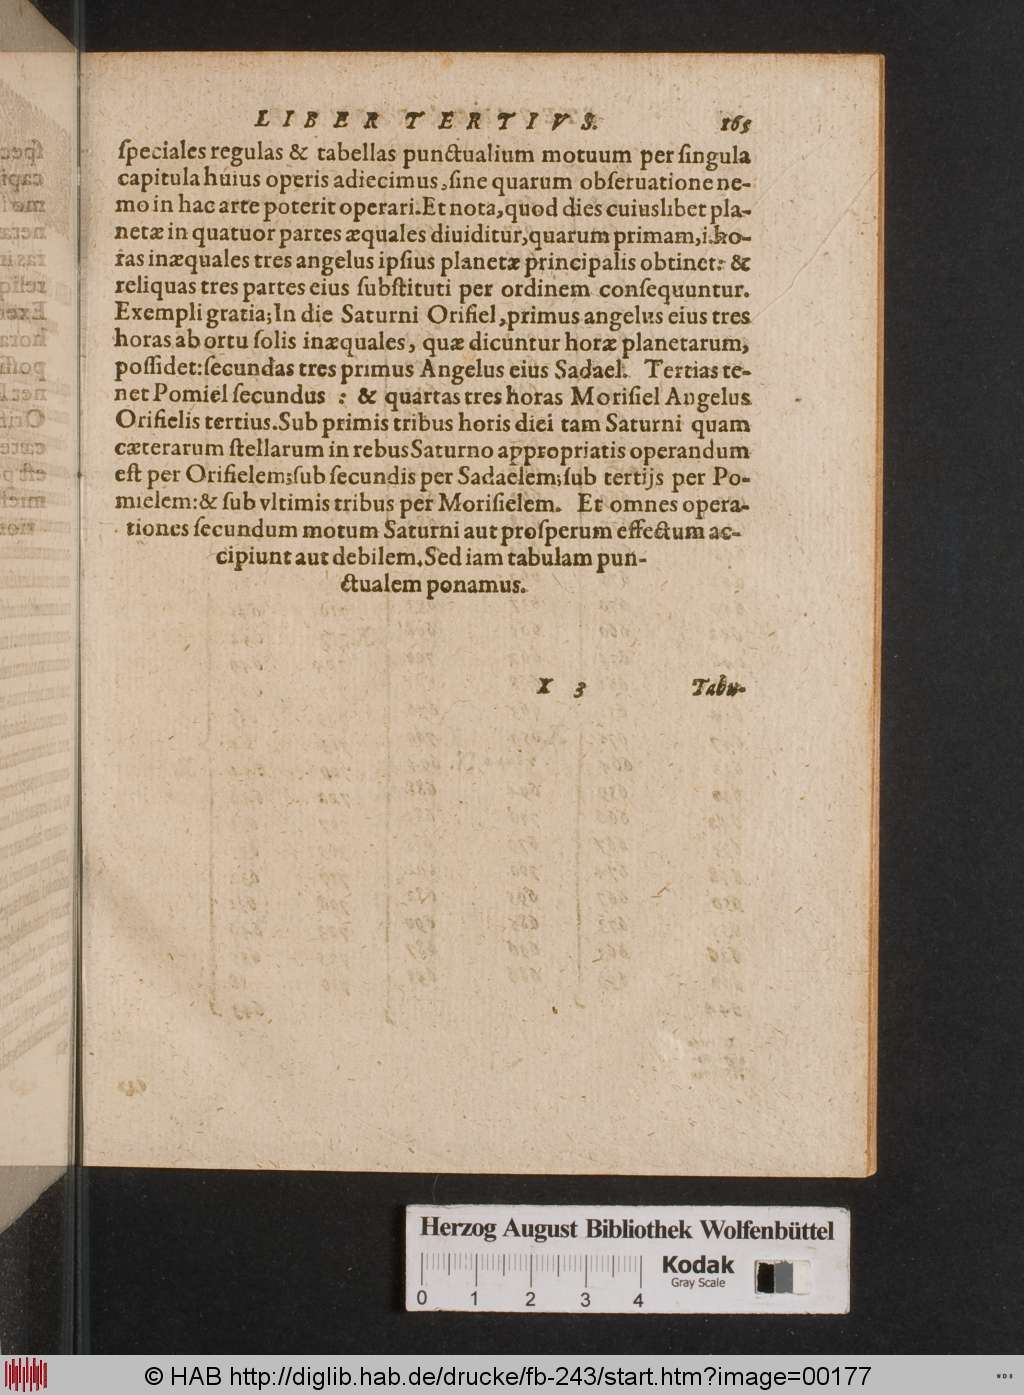 LIBER TERTIVS. 165
ſpeciales regulas & tabellas punctualium motuum per ſingula
capitula huius operis adiecimus, ſine quarum obſeruatione ne-
mo in hac arte poterit operari. Et nota, quod dies cuiuslibet pla-
netæ in quatuor partes æquales diuiditur, quarum primam, i. ho-
ras inæquales tres angelus ipſius planetæ principalis obtinet: &
reliquas tres partes eius ſubſtituti per ordinem conſequuntur.
Exempli gratia; In die Saturni Orifiel, primus angelus eius tres
horas ab ortu ſolis inæquales, quæ dicuntur horæ planetarum,
poſſidet: ſecundas tres primus Angelus eius Sadael. Tertias te-
net Pomiel ſecundus : & quartas tres horas Morifiel Angelus
Orifielis tertius. Sub primis tribus horis diei tam Saturni quam
cæterarum ſtellarum in rebus Saturno appropriatis operandum
eſt per Orifielem; ſub ſecundis per Sadaelem; ſub tertijs per Po-
mielem: & ſub vltimis tribus per Morifielem. Et omnes opera-
tiones ſecundum motum Saturni aut proſperum effectum ac-
cipiunt aut debilem. Sed iam tabulam pun-
ctualem ponamus.
X 3 Tabu-
Herzog August Bibliothek Wolfenbüttel
Kodak
Gray Scale
0 1 2 3 4
© HAB http://diglib.hab.de/drucke/fb-243/start.htm?image=00177